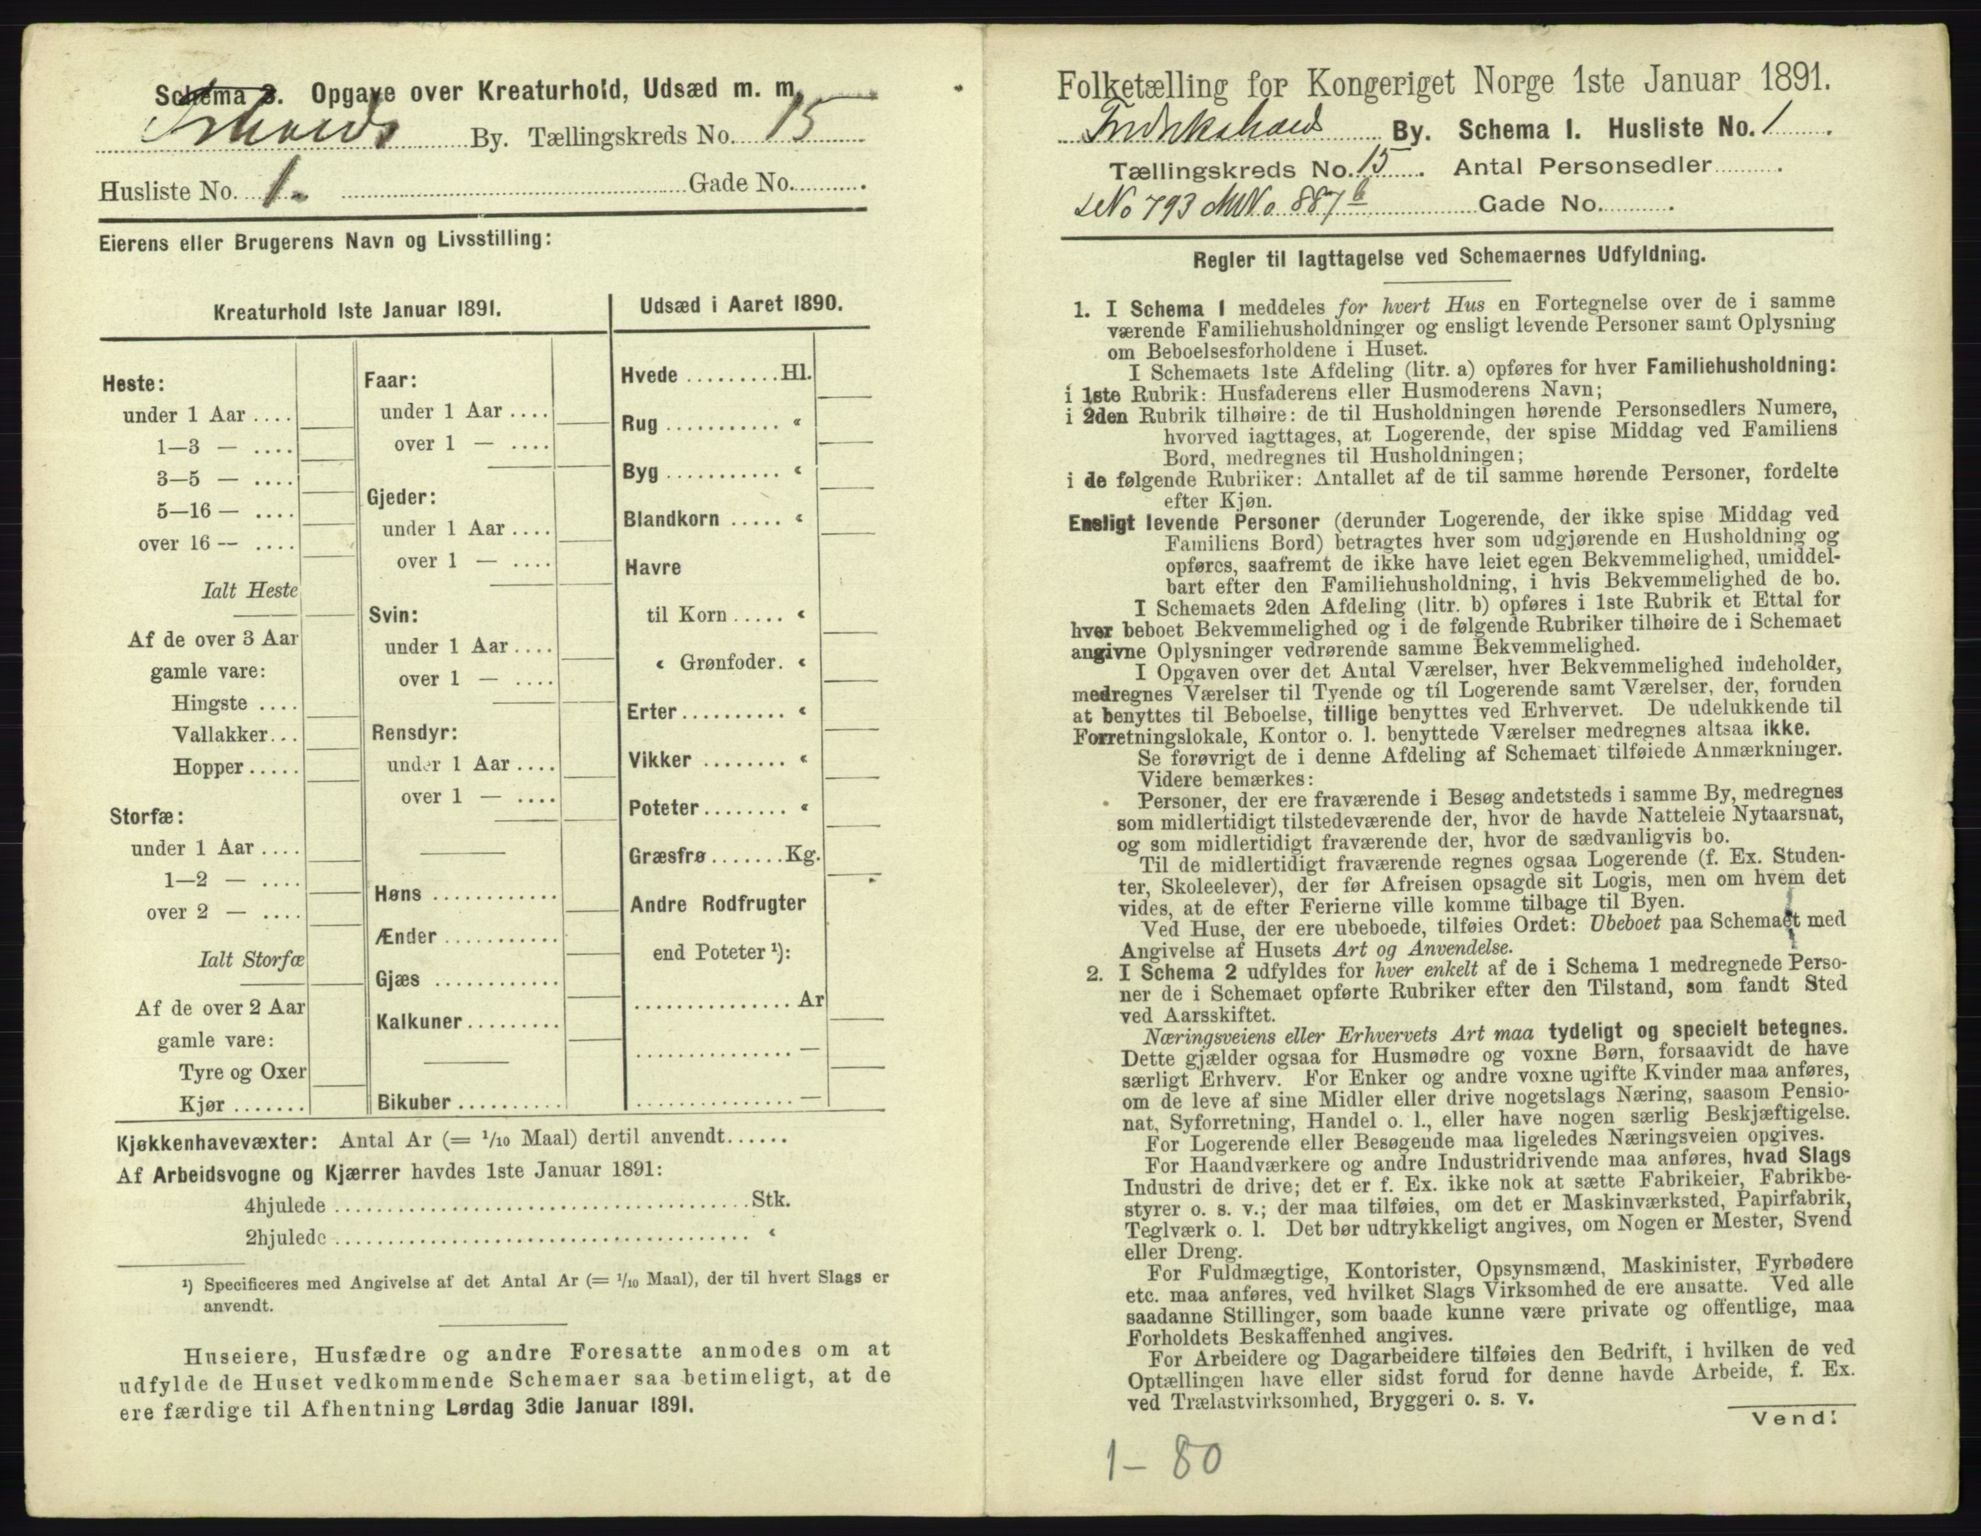 Schema 3. Opgave over Kreaturhold, Udsæd m. m.
By. Tællingskreds No. 15
Husliste No. 1. Gade No.
Eierens eller Brugerens Navn og Livsstilling:
Kreaturhold 1ste Januar 1891.
Heste:
under 1 Aar ....
1—3 — ....
3—5 — ....
5—16 — ....
over 16 — ....
Ialt Heste
Af de over 3 Aar
gamle vare:
Hingste ....
Vallakker...
Hopper.....
Storfæ:
under 1 Aar ....
1—2 — ....
over 2 — ....
Ialt Storfæ
Af de over 2 Aar
gamle vare:
Tyre og Oxer
Kjør.......
Faar:
under 1 Aar ....
over 1 — ....
Gjeder:
under 1 Aar ....
over 1 — ....
Svin:
under 1 Aar ....
over 1 — ....
Rensdyr:
under 1 Aar ....
over 1 — ....
Høns ............
Ænder ...........
Gjæs ............
Kalkuner.........
Bikuber ..........
Udsæd i Aaret 1890.
Hvede .........Hl.
Rug ........... «
Byg ........... «
Blandkorn ..... «
Havre
til Korn ..... «
« Grønfoder. «
Erter.......... «
Vikker ........ «
Poteter........ «
Græsfrø.......Kg.
Andre Rodfrugter
end Poteter ¹):
............... Ar
............... —
............... —
Kjøkkenhavevæxter: Antal Ar (= 1/10 Maal) dertil anvendt......
Af Arbeidsvogne og Kjærrer havdes 1ste Januar 1891:
4hjulede ........................................Stk.
2hjulede ........................................ «
¹) Specificeres med Angivelse af det Antal Ar (= 1/10 Maal), der til hvert Slags er
anvendt.
Huseiere, Husfædre og andre Foresatte anmodes om at
udfylde de Huset vedkommende Schemaer saa betimeligt, at de
ere færdige til Afhentning Lørdag 3die Januar 1891.
Folketælling for Kongeriget Norge 1ste Januar 1891.
Fredrikshald By. Schema 1. Husliste No. 1
Tællingskreds No. 15. Antal Personsedler..........
No 793 MNo 887 b Gade No..........
Regler til Iagttagelse ved Schemaernes Udfyldning.
1. I Schema 1 meddeles for hvert Hus en Fortegnelse over de i samme
værende Familiehusholdninger og ensligt levende Personer samt Oplysning
om Beboelsesforholdene i Huset.
I Schemaets 1ste Afdeling (litr. a) opføres for hver Familiehusholdning:
i 1ste Rubrik: Husfaderens eller Husmoderens Navn;
i 2den Rubrik tilhøire: de til Husholdningen hørende Personsedlers Numere,
hvorved iagttages, at Logerende, der spise Middag ved Familiens
Bord, medregnes til Husholdningen;
i de følgende Rubriker: Antallet af de til samme hørende Personer, fordelte
efter Kjøn.
Ensligt levende Personer (derunder Logerende, der ikke spise Middag ved
Familiens Bord) betragtes hver som udgjørende en Husholdning og
opføres, saafremt de ikke have leiet egen Bekvemmelighed, umiddel-
bart efter den Familiehusholdning, i hvis Bekvemmelighed de bo.
I Schemaets 2den Afdeling (litr. b) opføres i 1ste Rubrik et Ettal for
hver beboet Bekvemmelighed og i de følgende Rubriker tilhøire de i Schemaet
angivne Oplysninger vedrørende samme Bekvemmelighed.
I Opgaven over det Antal Værelser, hver Bekvemmelighed indeholder,
medregnes Værelser til Tyende og til Logerende samt Værelser, der, foruden
at benyttes til Beboelse, tillige benyttes ved Erhvervet. De udelukkende til
Forretningslokale, Kontor o. l. benyttede Værelser medregnes altsaa ikke.
Se forøvrigt de i denne Afdeling af Schemaet tilføiede Anmærkninger.
Videre bemærkes:
Personer, der ere fraværende i Besøg andetsteds i samme By, medregnes
som midlertidigt tilstedeværende der, hvor de havde Natteleie Nytaarsnat,
og som midlertidigt fraværende der, hvor de sædvanligvis bo.
Til de midlertidigt fraværende regnes ogsaa Logerende (f. Ex. Studen-
ter, Skoleelever), der før Afreisen opsagde sit Logis, men om hvem det
vides, at de efter Ferierne ville komme tilbage til Byen.
Ved Huse, der ere ubeboede, tilføies Ordet: Ubeboet paa Schemaet med
Angivelse af Husets Art og Anvendelse.
2. I Schema 2 udfyldes for hver enkelt af de i Schema 1 medregnede Perso-
ner de i Schemaet opførte Rubriker efter den Tilstand, som fandt Sted
ved Aarsskiftet.
Næringsveiens eller Erhvervets Art maa tydeligt og specielt betegnes.
Dette gjælder ogsaa for Husmødre og voxne Børn, forsaavidt de have
særligt Erhverv. For Enker og andre voxne ugifte Kvinder maa anføres,
om de leve af sine Midler eller drive nogetslags Næring, saasom Pensio-
nat, Syforretning, Handel o. l., eller have nogen særlig Beskjæftigelse.
For Logerende eller Besøgende maa ligeledes Næringsveien opgives.
For Haandværkere og andre Industridrivende maa anføres, hvad Slags
Industri de drive; det er f. Ex. ikke nok at sætte Fabrikeier, Fabrikbe-
styrer o. s. v.; der maa tilføies, om det er Maskinværksted, Papirfabrik,
Teglværk o. l. Det bør udtrykkeligt angives, om Nogen er Mester, Svend
eller Dreng.
For Fuldmægtige, Kontorister, Opsynsmænd, Maskinister, Fyrbødere
etc. maa anføres, ved hvilket Slags Virksomhed de ere ansatte. Ved alle
saadanne Stillinger, som baade kunne være private og offentlige, maa
Forholdets Beskaffenhed angives.
For Arbeidere og Dagarbeidere tilføies den Bedrift, i hvilken de ved
Optællingen have eller sidst forud for denne havde Arbeide, f. Ex.
ved Trælastvirksomhed, Bryggeri o. s. v.
Vend!
1-80